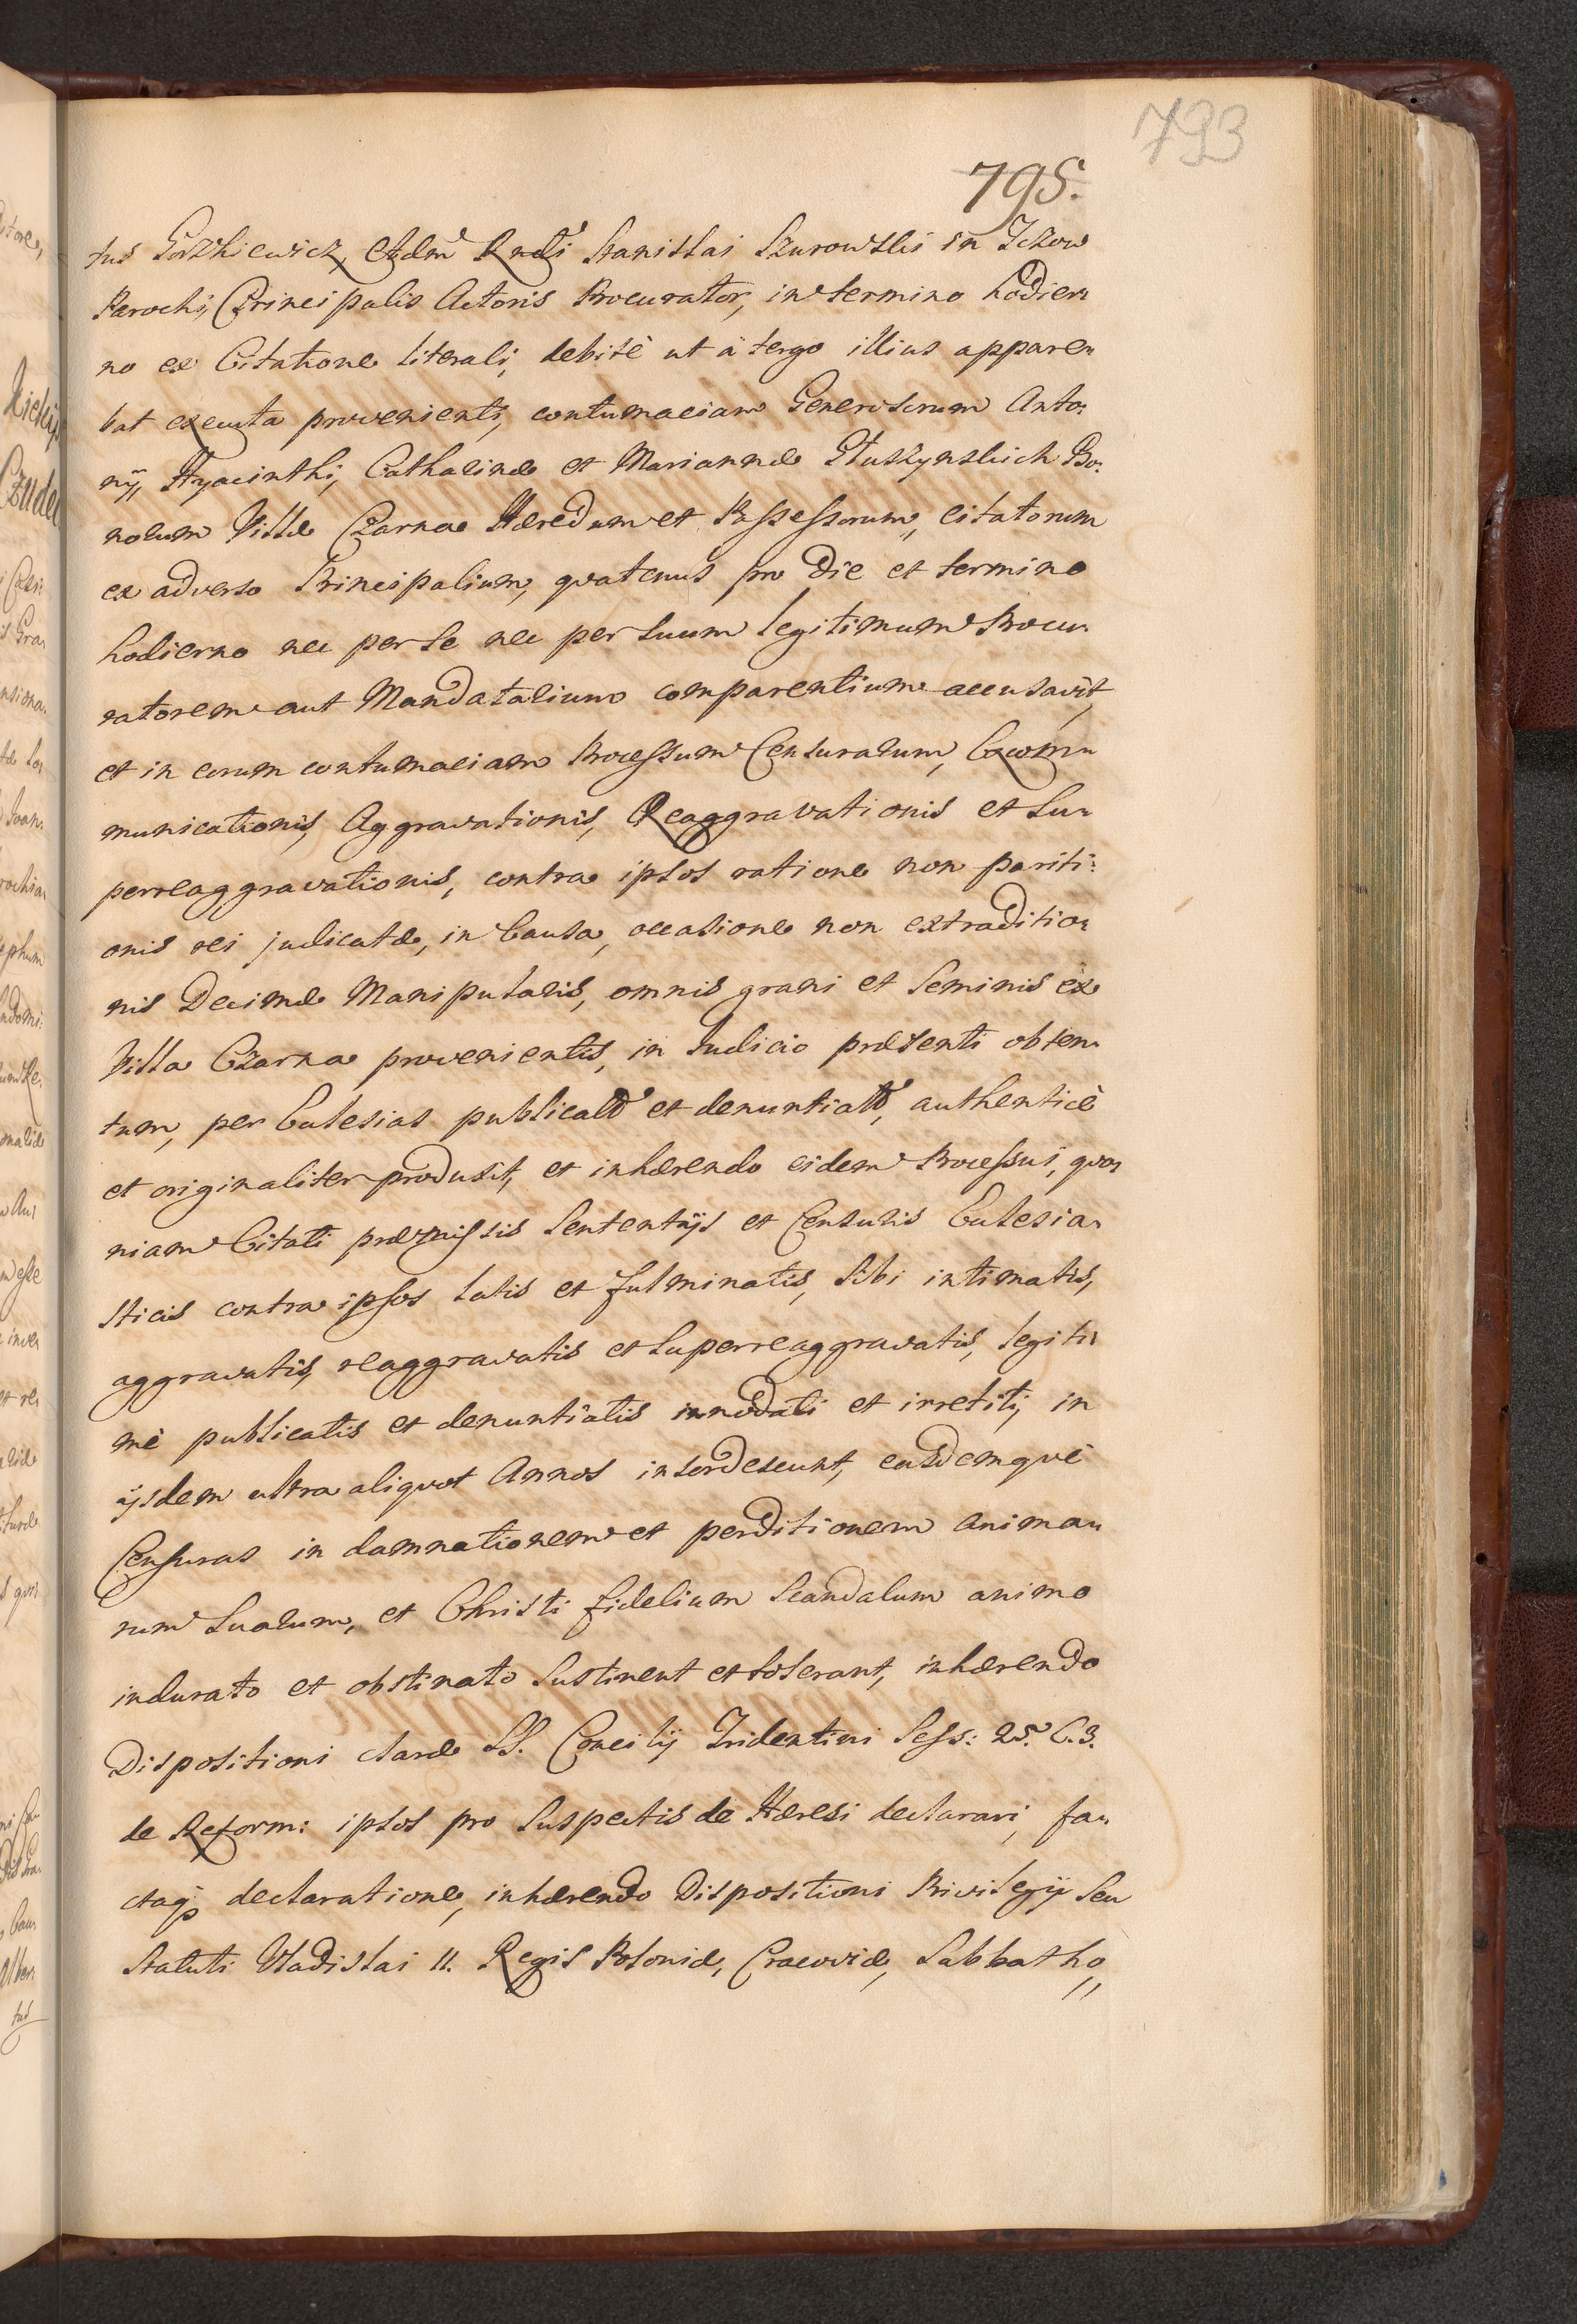 793
795.
tus Gorzkiewicz, Adm Rndi Stanislai Szurowski in Jezow
Parochi, Principalis Actoris Procurator, in termino hodier„
no ex Citatione literali, debitè ut à tergo illius appare„
bat executa provenienti, contumaciam Generosorum Anto:
nij, Hyacinthi, Catharinæ et Mariannæ Stuszynskich Bo:
norum Villæ Czarna Hæredum et Possessorum, citatorum
ex adverso Principalium, quatenus pro die et termino
hodierno nec per se nec per suum legitimum Procu„
ratorem aut Mandatarium comparentium accusavit,
et in eorum contumaciam Processum Censurarum, Excom„
municationis, Aggravationis, Reaggravationis et Su„
perreaggravationis, contra ipsos ratione non pariti:
onis rei judicatæ, in Causa, occasione non extraditio:
nis Decimæ Manipularis, omnis grani et Seminis ex
Villa Czarna provenientis, in Judicio præsenti obten„
tum, per Eclesias publicatũ et denuntiatũ, authenticè
et originaliter produxit, et inhærendo eidem Processui, quo„
niam Citati præmissis Sententijs et Censuris Eclesia„
sticis contra ipsos latis et fulminatis, sibi intimatis,
aggravatis, reaggravatis et Superreaggravatis, legiti„
mè publicatis et denuntiatis innodati et irretiti, in
ijsdem ultra aliquot Annos insordescunt, easdemquè
Censuras in damnationem et perditionem anima„
rum Suarum, et Christi fidelium Scandalum animo
indurato et obstinato Sustinent et tolerant, inhærendo
Dispositioni claræ SS. Concilij Tridentini Sess: 25. C. 3.
de Reform: ipsos pro Suspectis de Hæresi declarari, fa„
ctaq; declaratione, inhærendo Dispositioni Privilegij Seu
Statuti Vladislai II. Regis Poloniæ, Cracoviæ, Sabbatho,,